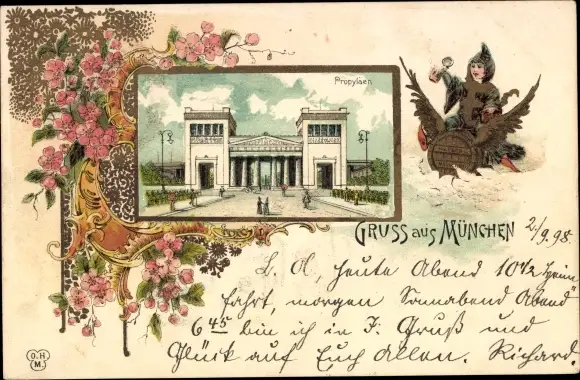 Propylaen
GRUSS aus MÜNCHEN
2/9.98.
L. A, heute Abend 10 1/2 Heim
fahrt, morgen Sonnabend Abend
6 45 bin ich in J. Gruß und
Glück auf Euch Allen. Richard.
O.H
M.